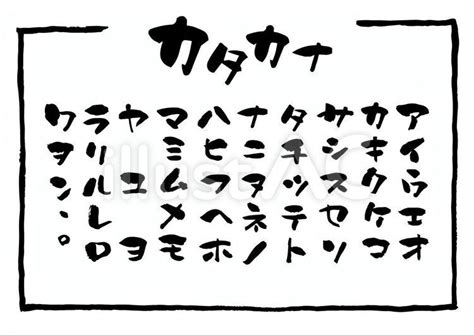 カタカナ
アイウエオ
カキクケコ
サシスセソ
タチツテト
ナニヌネノ
ハヒフヘホ
マミムメモ
ヤユヨ
ラリルレロ
ワヲン、。
illustAC